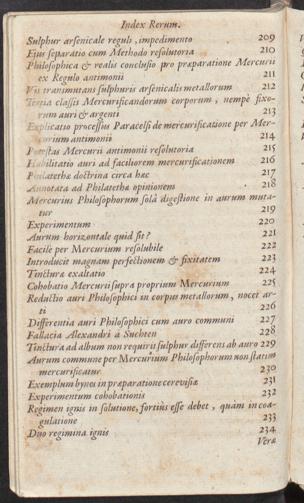 Index Rerum.
Sulphur arsenicale reguli, impedimento 209
Eius separatio cum Methodo resolutoria 210
Philosophica & realis conclusio pro præparatione Mercurii
ex Regulo antimonii 211
Vis transmutans sulphuris arsenicalis metallorum 212
Tertia classis Mercurificandorum corporum, nempè fixo-
rum auri & argenti 213
Explicatio processus Paracelsi de mercurificatione per Mer-
curium antimonii 214
Potestas Mercurii antimonii resolutoria 215
Habilitatio auri ad faciliorem mercurificationem 216
Philatethæ doctrina circa hæc 217
Annotata ad Philatethæ opinionem 218
Mercurius Philosophorum solâ digestione in aurum muta-
tur 219
Experimentum 220
Aurum horizontale quid sit? 221
Facilè per Mercurium resolubile 222
Introducit magnam perfectionem & fixitatem 223
Tinctura exaltatio 224
Cohobatio Mercurii supra proprium Mercurium 225
Reductio auri Philosophici in corpus metallorum, nocet ar-
ti 226
Differentia auri Philosophici cum auro communi 227
Fallacia Alexandri à Suchten 228
Tinctura ad album non requirit sulphur differens ab auro 229
Aurum commune per Mercurium Philosophorum non statim
mercurificatur 230
Exemplum hujus in præparatione cerevisiæ 231
Experimentum cohobationis 232
Regimen ignis in solutione, fortiùs esse debet, quàm in coa-
gulatione 233
Duo regimina ignis 234
Vera